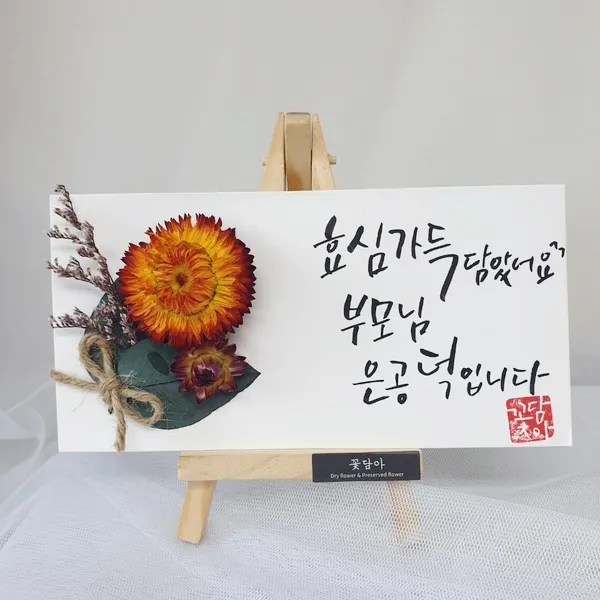 효심가득 담았어요^^
부모님
은공 덕입니다
꼬담
아
꽃담아
Dry flower & Preserved flower